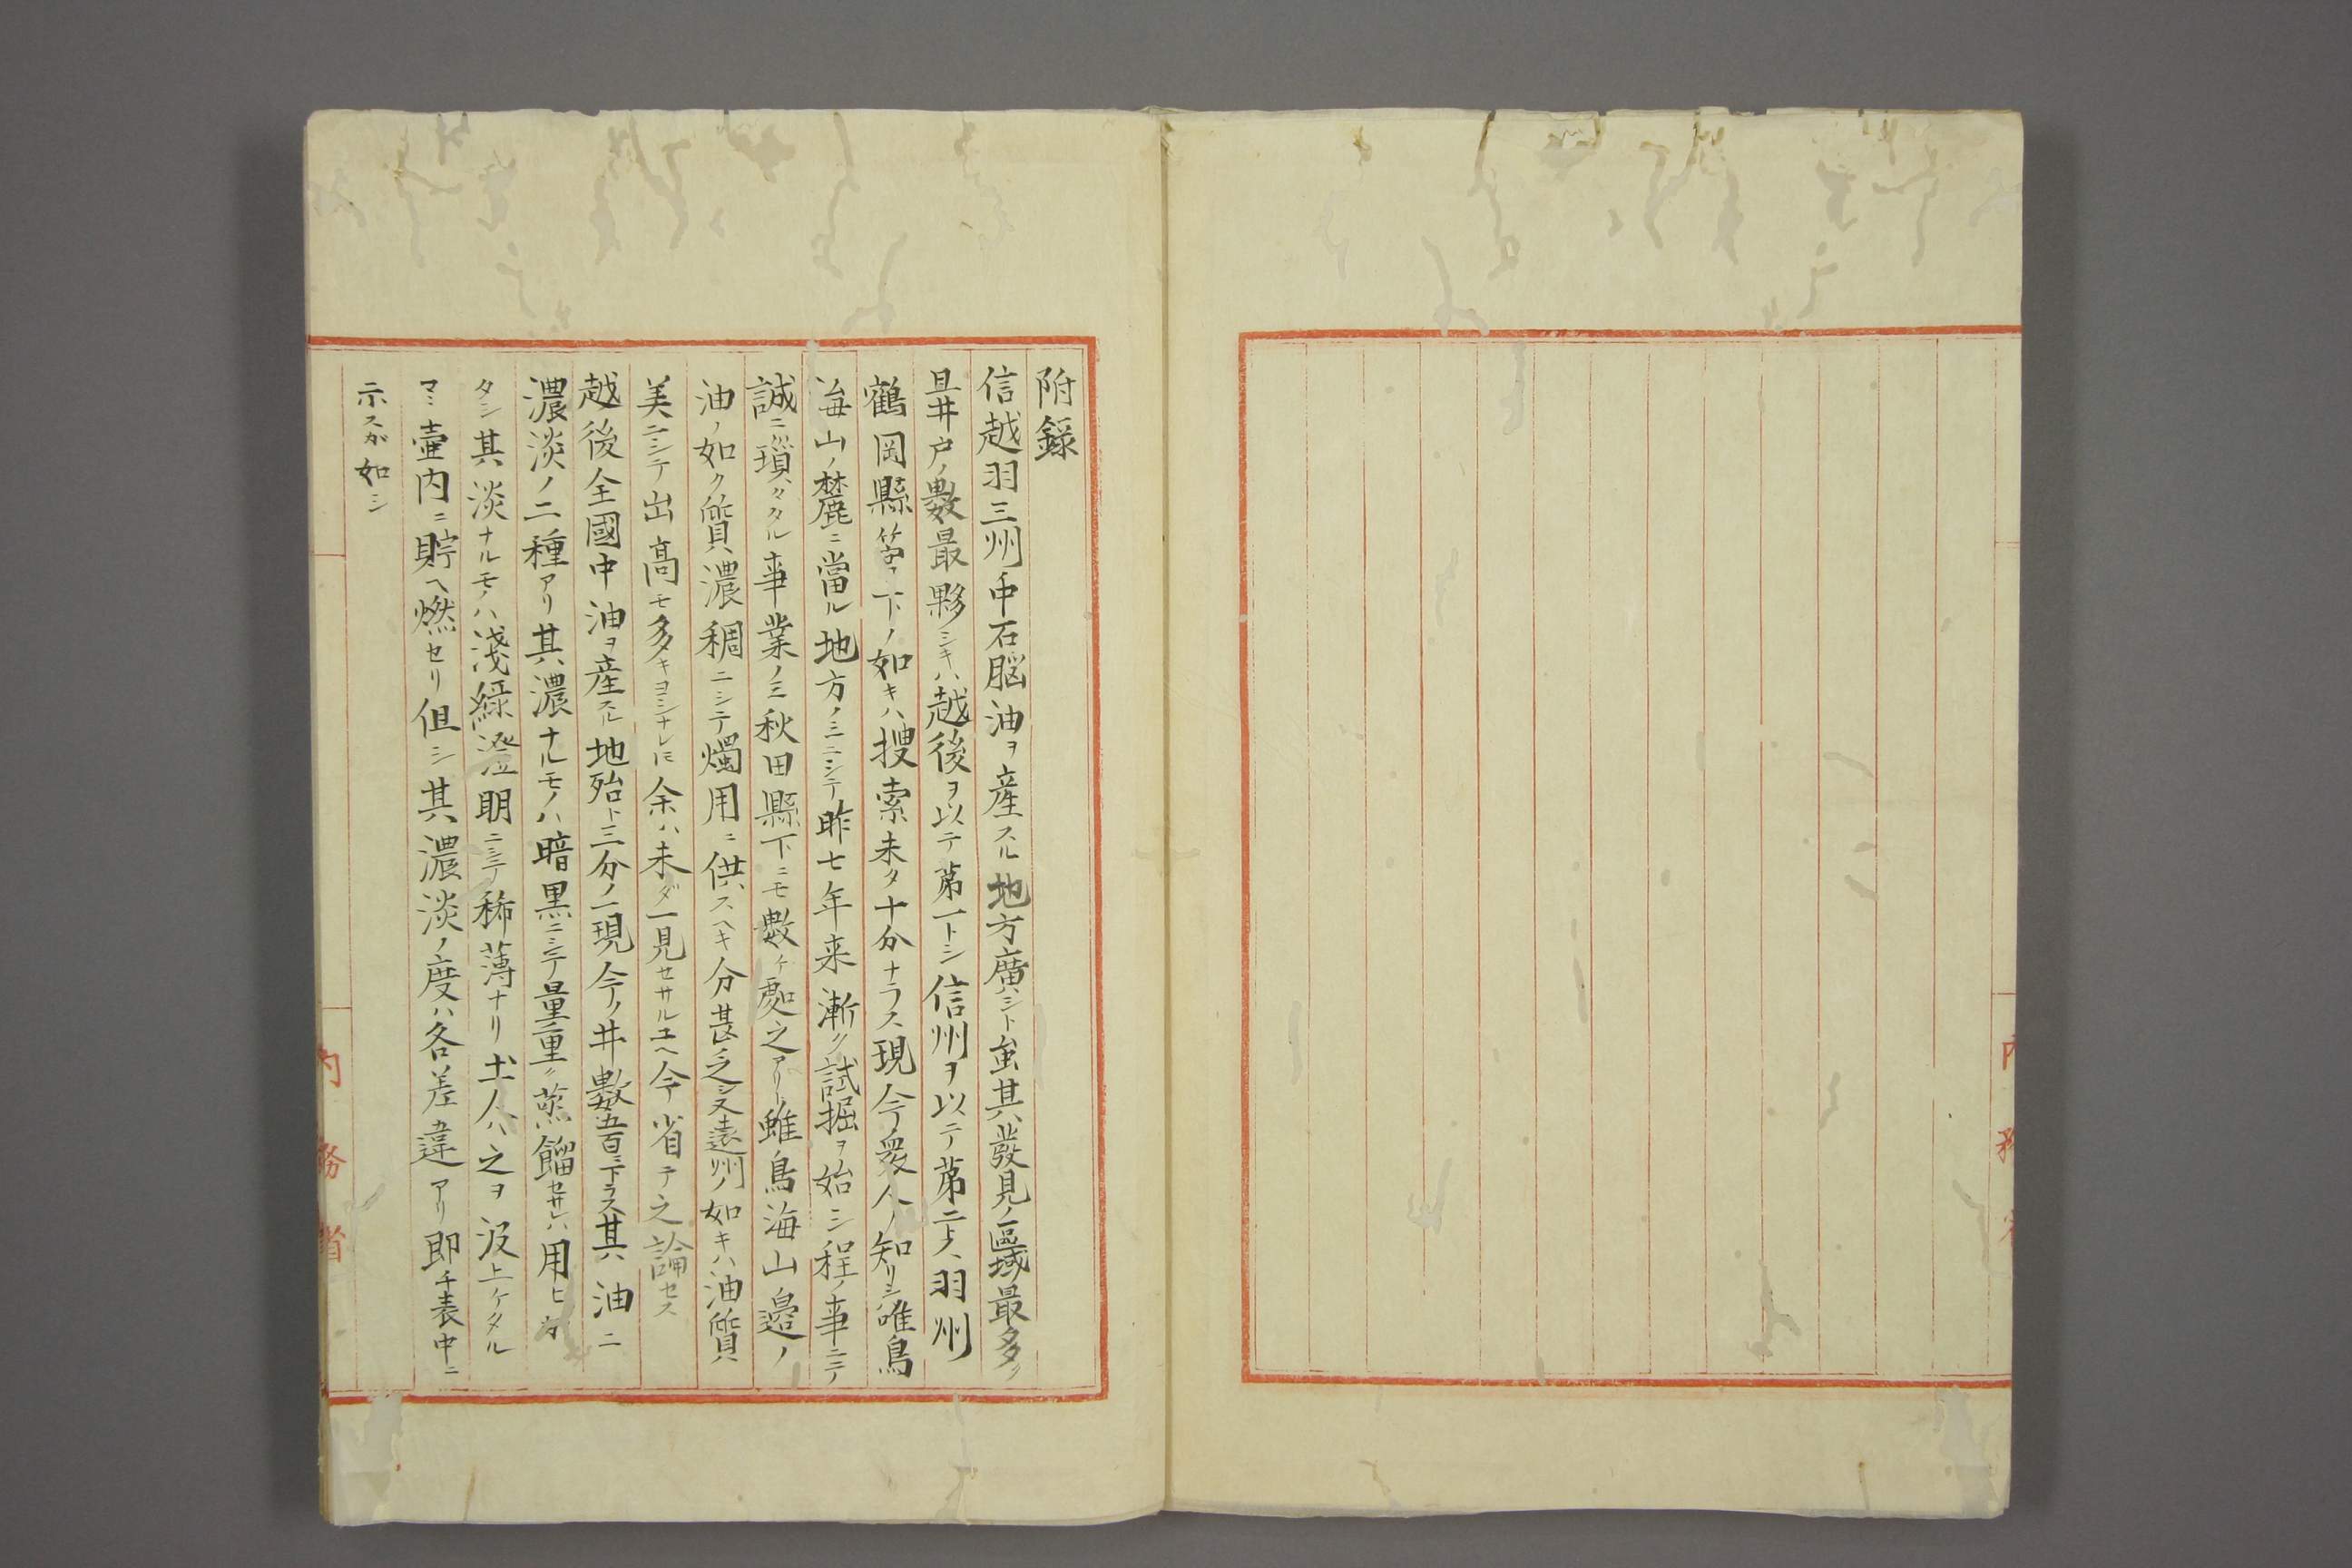 附録
信越羽三州中石脳油ヲ産スル地方廣シト𨿽其發見ノ區域最多ク
且井戸ノ數最夥シキハ越後ヲ以テ第一トシ信州ヲ以テ第二トス羽州
鶴岡縣管下ノ如キハ搜索未タ十分ナラス現今衆人ノ知リシハ唯鳥
海山ノ麓ニ當ル地方ノミニシテ昨七年来漸ク試掘ヲ始シ程ノ事ニテ
誠ニ瑣々タル事業ノミ秋田縣下ニモ數ケ處之アリ雖鳥海山ノ邉ノ
油ノ如ク質濃稠ニシテ燭用ニ供スヘキ分甚乏シ又遠州ノ如キハ油質
美ニシテ出高モ多キヨシナレ𪜈余ハ未ダ一見セサルユヘ今省テ之論セス
越後全國中油ヲ産スル地殆ト三分ノ一現今ノ井數五百ニ下ラス其油ニ
濃淡ノ二種アリ其濃ナルモノハ暗黒ニシテ量重ク蒸餾セサレハ用ヒカ
タシ其淡ナルモノハ淺緑澄明ニシテ稀薄ナリ土人ハ之ヲ汲上ケタル
マヽ壷内ニ貯ヘ燃セリ但シ其濃淡ノ度ハ各差違アリ即チ表中ニ
示スガ如シ
内務省